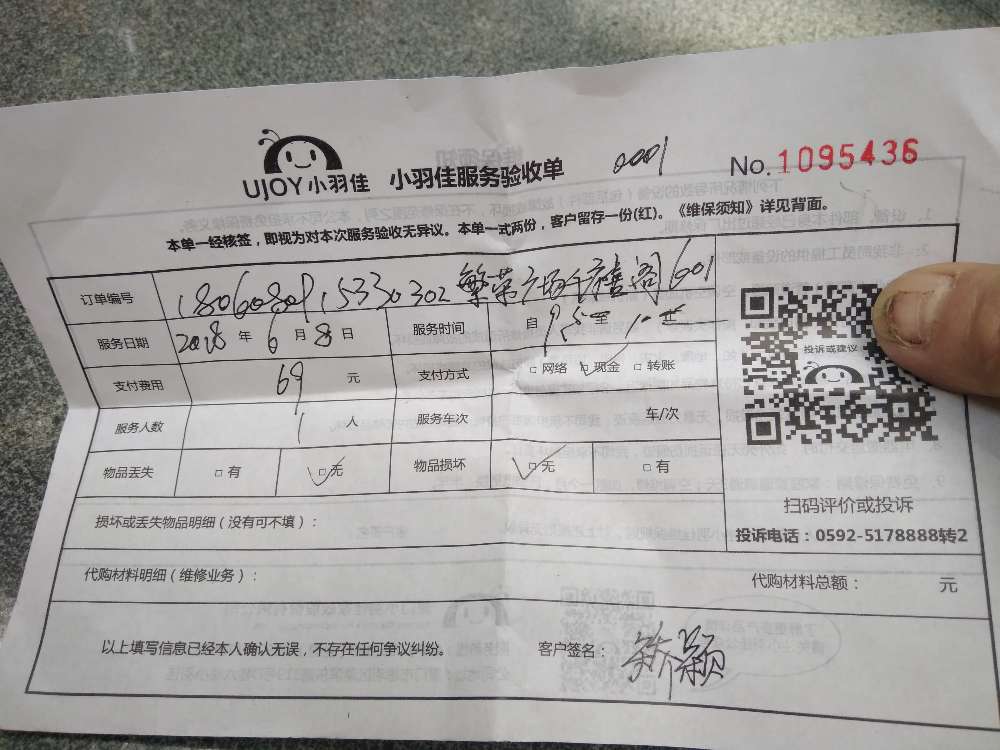 UJOY小羽佳 小羽佳服务验收单 0001 No.1095436
本单一经核签，即视为对本次服务验收无异议。本单一式两份，客户留存一份(红)。《维保须知》详见背面。
订单编号 1806080915330302 繁荣广场千禧阁601
服务日期 2018年6月8日 服务时间 自
支付费用 69 元 支付方式 □网络 □现金 □转账
服务人数 1 人 服务车次 车/次
物品丢失 □有 □无 物品损坏 □无 □有
损坏或丢失物品明细（没有可不填）：
代购材料明细（维修业务）： 代购材料总额： 元
以上填写信息已经本人确认无误，不存在任何争议纠纷。 客户签名：
投诉或建议
扫码评价或投诉
投诉电话：0592-5178888转2